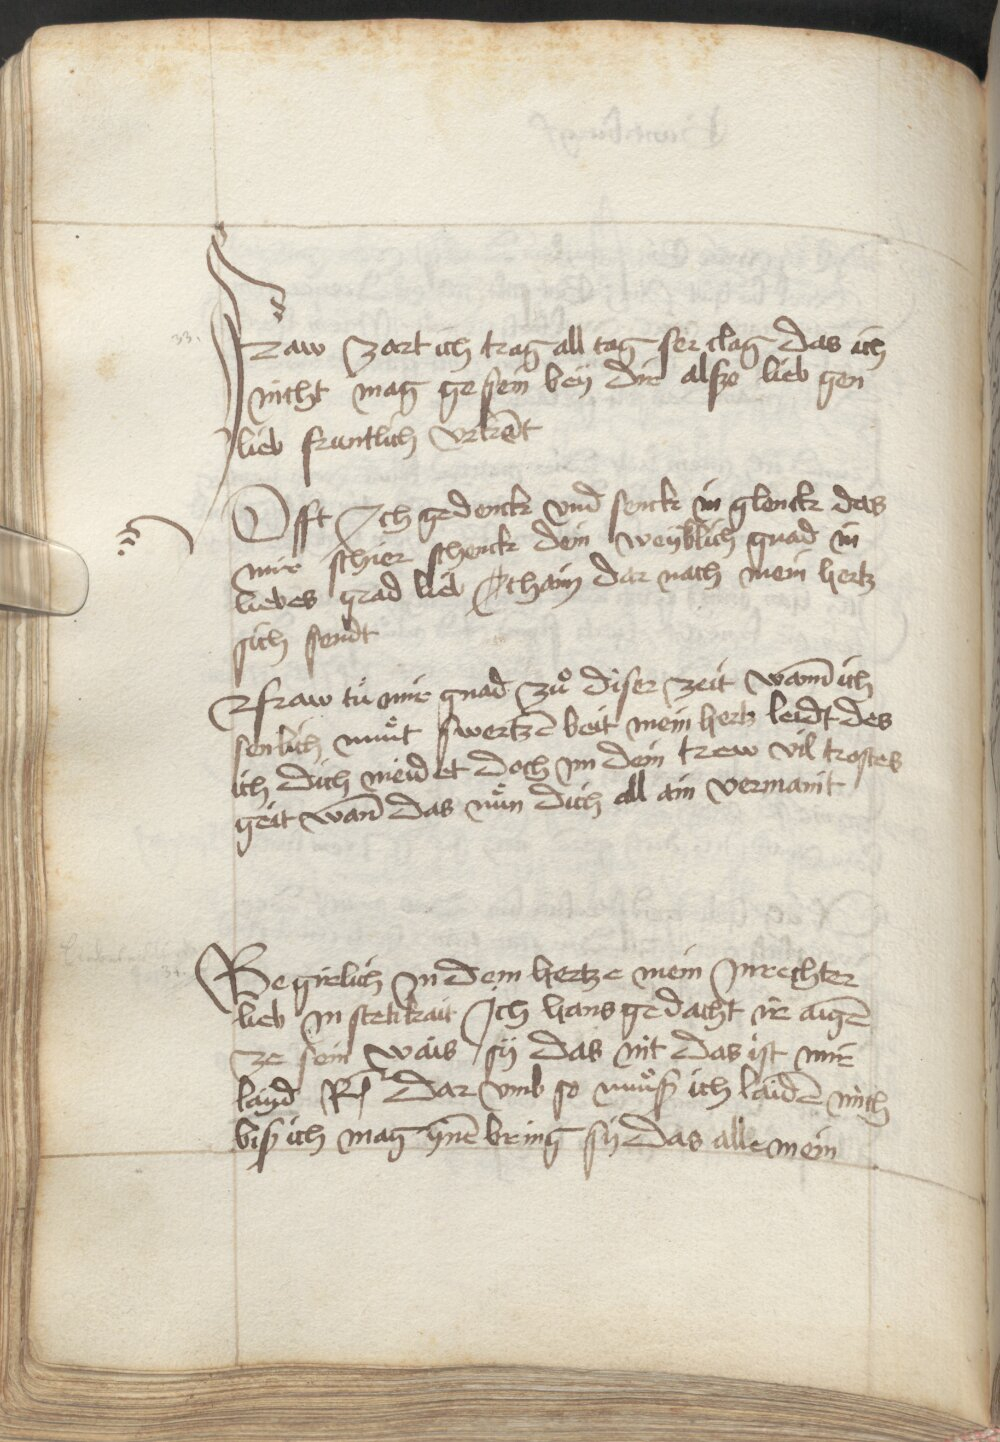 33.
Fraw zart ich trag all tag ser clag das ich
nicht mag gesein bey dir alsze lieb gen
lieb fruntlich vrkēt
Offt Ich gedenck vnd senck in glenck das
mir schier schenck dein weyblich gnad in
liebes grad lieb thain dar nach mein hertz
sich sendt
fraw tů mir gnad zů diser zeit wann ich
senlich můt swertzē beit mein hertz leidt des
ich dich nieid et doch in dein trew vil trostes
geit wān das nůn dich all ain vermant
34.
Begirlich in dem hertze mein In rechter
lieb in stetikait Ich hans gedacht ir aigē
ze sein wais sy das nit das ist mir
layd Rſ dar vmb so můsz ich laidē mich
bisz ich mag ynē bring sy das alle mein